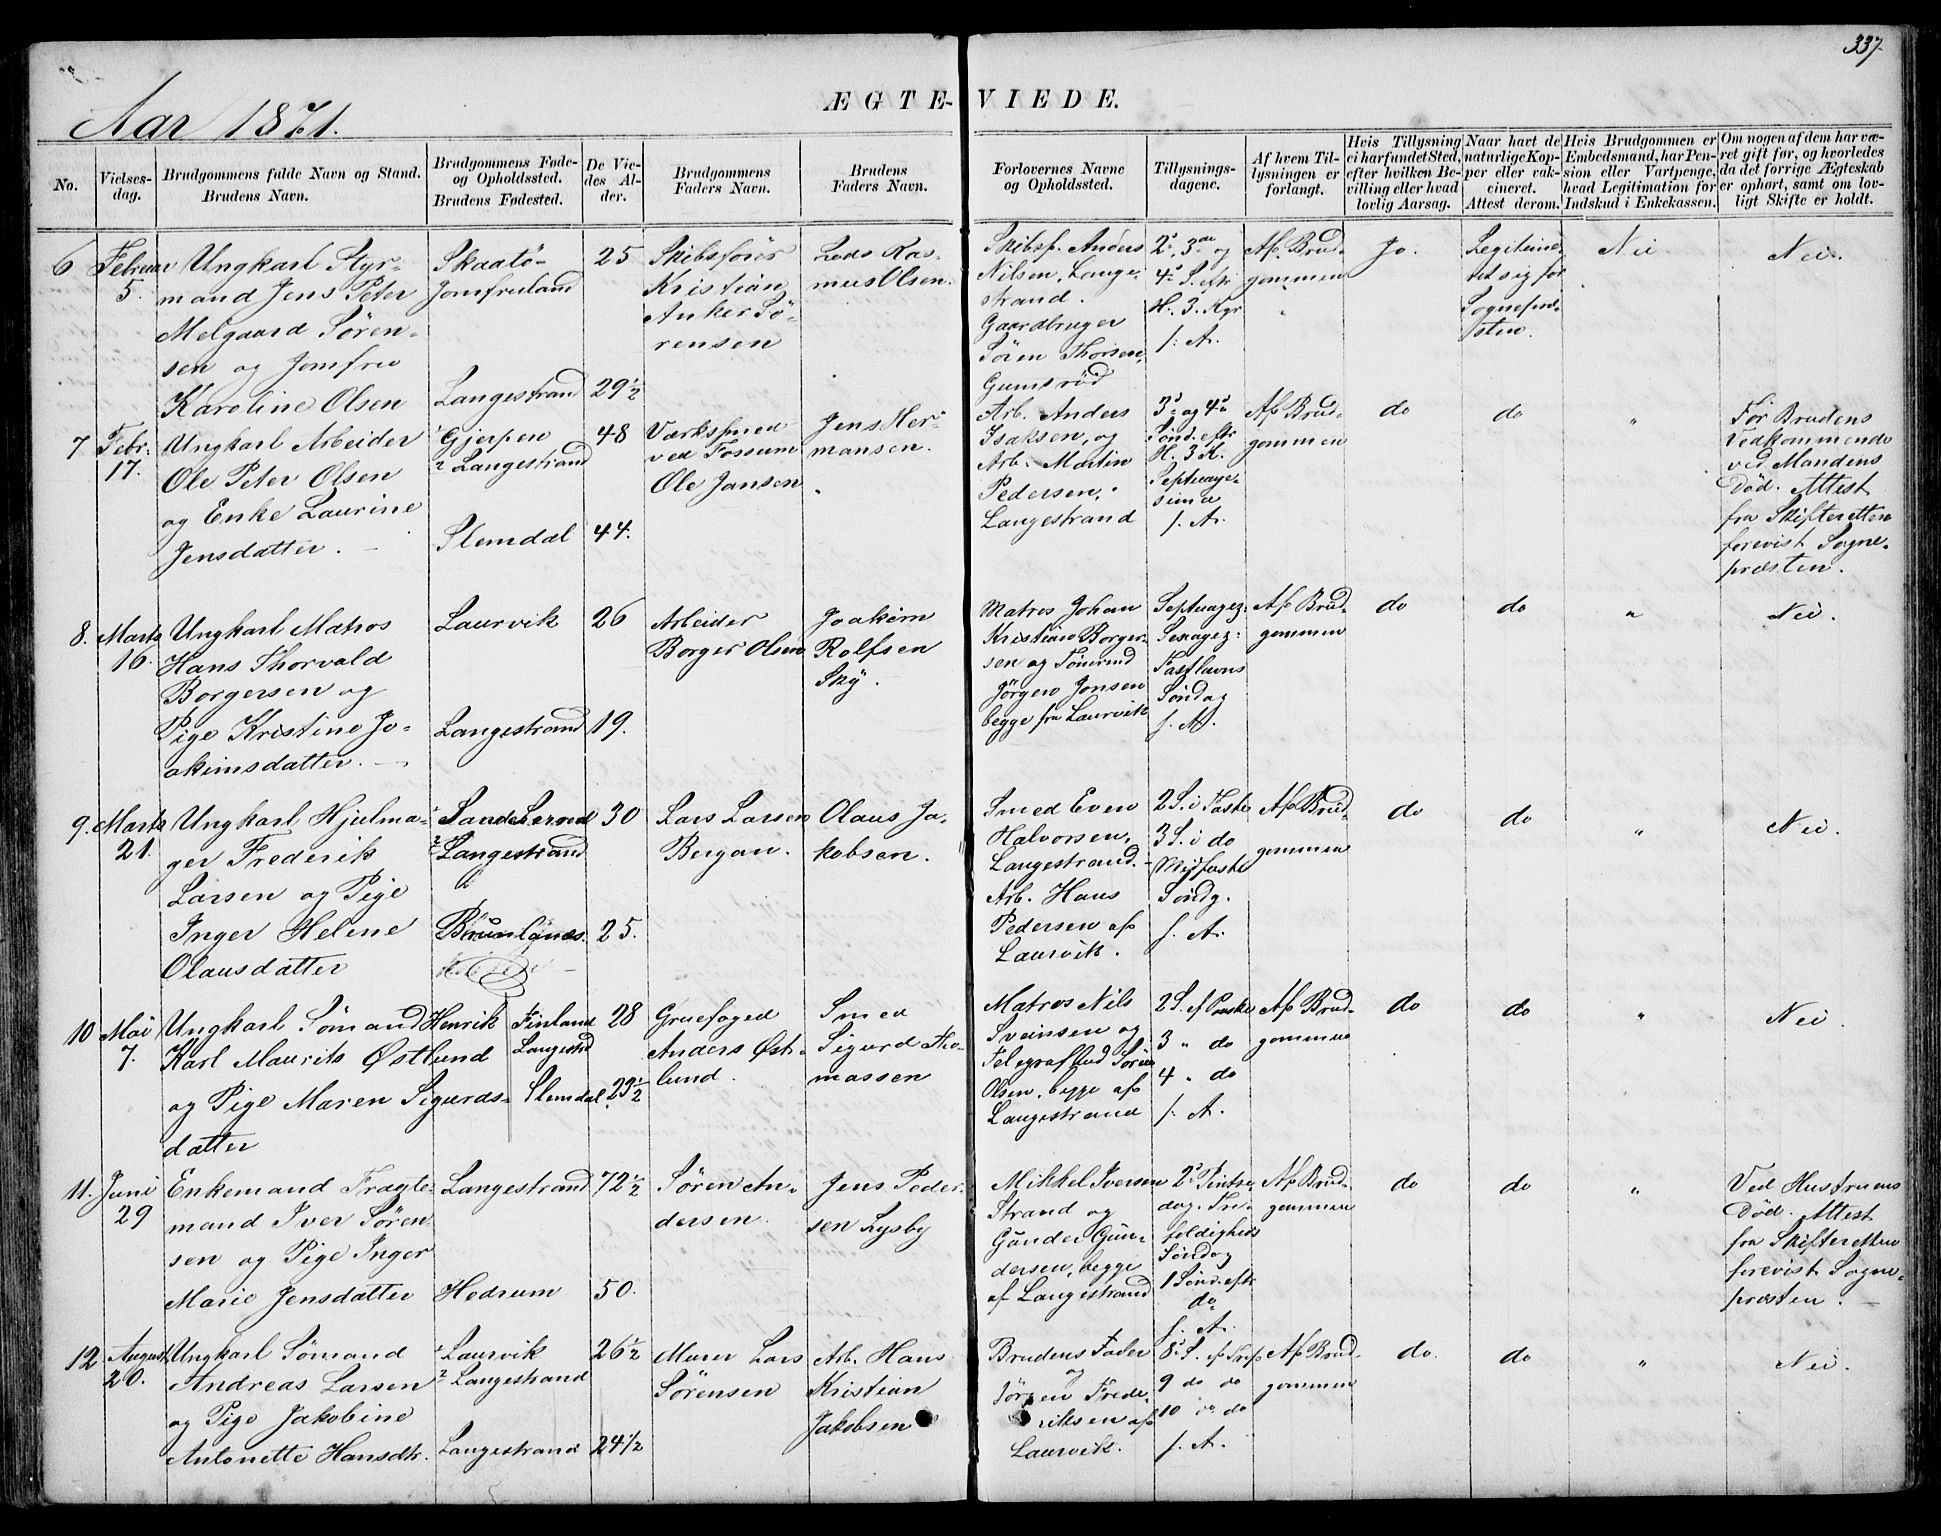 337
Aar 1871.
ÆGTE-VIEDE.
No.
Vielses-
dag.
Brudgommens fulde Navn og Stand.
Brudens Navn.
Brudgommens Føde-
og Opholdssted.
Brudens Fødested.
De Vie-
des Al-
der.
Brudgommens
Faders Navn.
Brudens
Faders Navn.
Forlovernes Navne
og Opholdssted.
Tillysnings-
dagene.
Af hvem Til-
lysningen er
forlangt.
Hvis Tillysning
ei har fundet Sted,
efter hvilken Be-
villing eller hvad
lovlig Aarsag.
Naar havt de
naturlige Kop-
per eller vak-
cineret.
Attest derom.
Hvis Brudgommen er
Embedsmand, har Pen-
sion eller Vartpenge,
hvad Legitimation for
Indskud i Enkekassen.
Om nogen af dem har væ-
ret gift før, og hvorledes
da det forrige Ægteskab
er ophørt, samt om lov-
ligt Skifte er holdt.
6
Februar
5.
Ungkarl Styr-
mand Jens Peter
Melgaard Sören-
sen og Jomfru
Karoline Olsen
Skaatö-
Jomfruland
Langestrand
25
29 1/2
Skibsförer
Kristian
Anker Sö-
rensen
Lods Ras-
mus Olsen.
Skibsf. Anders
Nilsen, Lange-
strand.
Gaardbruger
Sören Thorsen,
Gumsröd
2', 3die og
4' S. eftr
H. 3. Kgr
f. A.
Af Brud-
gommen
Jo.
Legitime-
ret sig for
Sognepræ-
sten.
Nei
Nei.
7
Febr.
17.
Ungkarl Arbeider
Ole Peter Olsen
og Enke Laurine
Jensdatter.
1 Gjerpen
2 Langestrand
Slemdal
48
44.
Værksmed
ved Fossum
Ole Jansen
Jens Her-
mansen.
Arb. Anders
Isaksen, og
Arb. Martin
Pedersen,
Langestrand
3' og 4'
Sönd. eftr
H. 3 K.
Septuage-
sima
f. A.
Af Brud-
gommen
do
do
"
For Brudens
Vedkommende
ved Mandens
Död. Attest
fra Skifteretten
forevist Sogne-
præsten.
8.
Marts
16.
Ungkarl Matros
Hans Thorvald
Borgersen og
Pige Kristine Jo-
akimsdatter.
Laurvik
Langestrand
26
19.
Arbeider
Borger Olsen
Joakim
Rolfsen
Sky.
Matros Johan
Kristian Borger-
sen og Tömmd
Jörgen Jonsen
begge fra Laurvik
Septuagez.
Sexagez.
Fastlavns
Söndag
f. A.
Af Brud-
gommen
do
do
"
Nei.
9.
Marts
21.
Ungkarl Hjulma-
ger Frederik
Larsen og Pige
Inger Helene
Olausdatter
1 Sandeherred
2 Langestrand
Brunlanæs.
30
25.
Lars Larsen
Bergan.
Olaus Ja-
kobsen.
Smed Even
Halvorsen,
Langestrand.
Arb. Hans
Pedersen af
Laurvik.
2 S. i Faste
3 S. i do
Midfaste
Söndg.
f. A.
Af Brud-
gommen
do
do
"
Nei.
10
Mai
7.
Ungkarl Sömand
Karl Maurits Østlund
og Pige Maren Sigurds-
datter
Henrik
Finland
Langestrd
Slemdal
28
29 1/2
Gruefoged
Anders Øst-
lund.
Smed
Sigurd Tho-
massen
Matros Nils
Sveinsen og
Telegrafbud Sören
Olsen, begge af
Langestrand
2 S. ef Paaske
3 " do
4 " do
f. A.
Af Brud-
gommen
do
do
"
Nei.
11.
Juni
29
Enkemand Fragte-
mand Iver Sören-
sen og Pige Inger
Marie Jensdatter
Langestrand
Hedrum
72 1/2
50.
Sören An-
dersen.
Jens Peder-
sen Lysby
Mikkel Iversen
Strand og
Gunder Gun-
dersen, begge
af Langestrand
2' Pintse-
dag. Tre-
foldigheds
Söndag
1 Sönd. eftr
do
f. A.
Af Brud-
gommen
do
do
"
Ved Hustruens
Död. Attest
fra Skifteretten
forevist Sogne-
præsten.
12
August
20.
Ungkarl Sömand
Andreas Larsen
og Pige Jakobine
Antonette Hansdtr.
1 Laurvik
2 Langestrand
Langestrand
26 1/2
24 1/2
Murer Lars
Sörensen
Arb. Hans
Kristian
Jakobsen
Brudens Fader
og
Jörgen Frede-
riksen af
Laurvik.
8' S. ef Tref
9 do do
10 " do
f. A.
Af Brud-
gommen
do.
do
"
Nei.